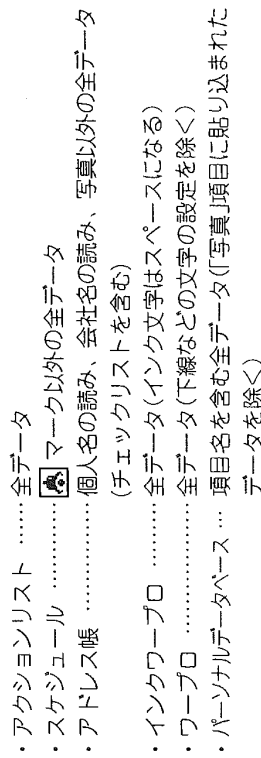 ・アクションリスト ……全データ
・スケジュール ………… マーク以外の全データ
・アドレス帳 ………………個人名の読み、会社名の読み、写真以外の全データ
(チェックリストを含む)
・インクワープロ …………全データ(インク文字はスペースになる)
・ワープロ …………………全データ(下線などの文字の設定を除く)
・パーソナルデータベース … 項目名を含む全データ(「写真」項目に貼り込まれた
データを除く)